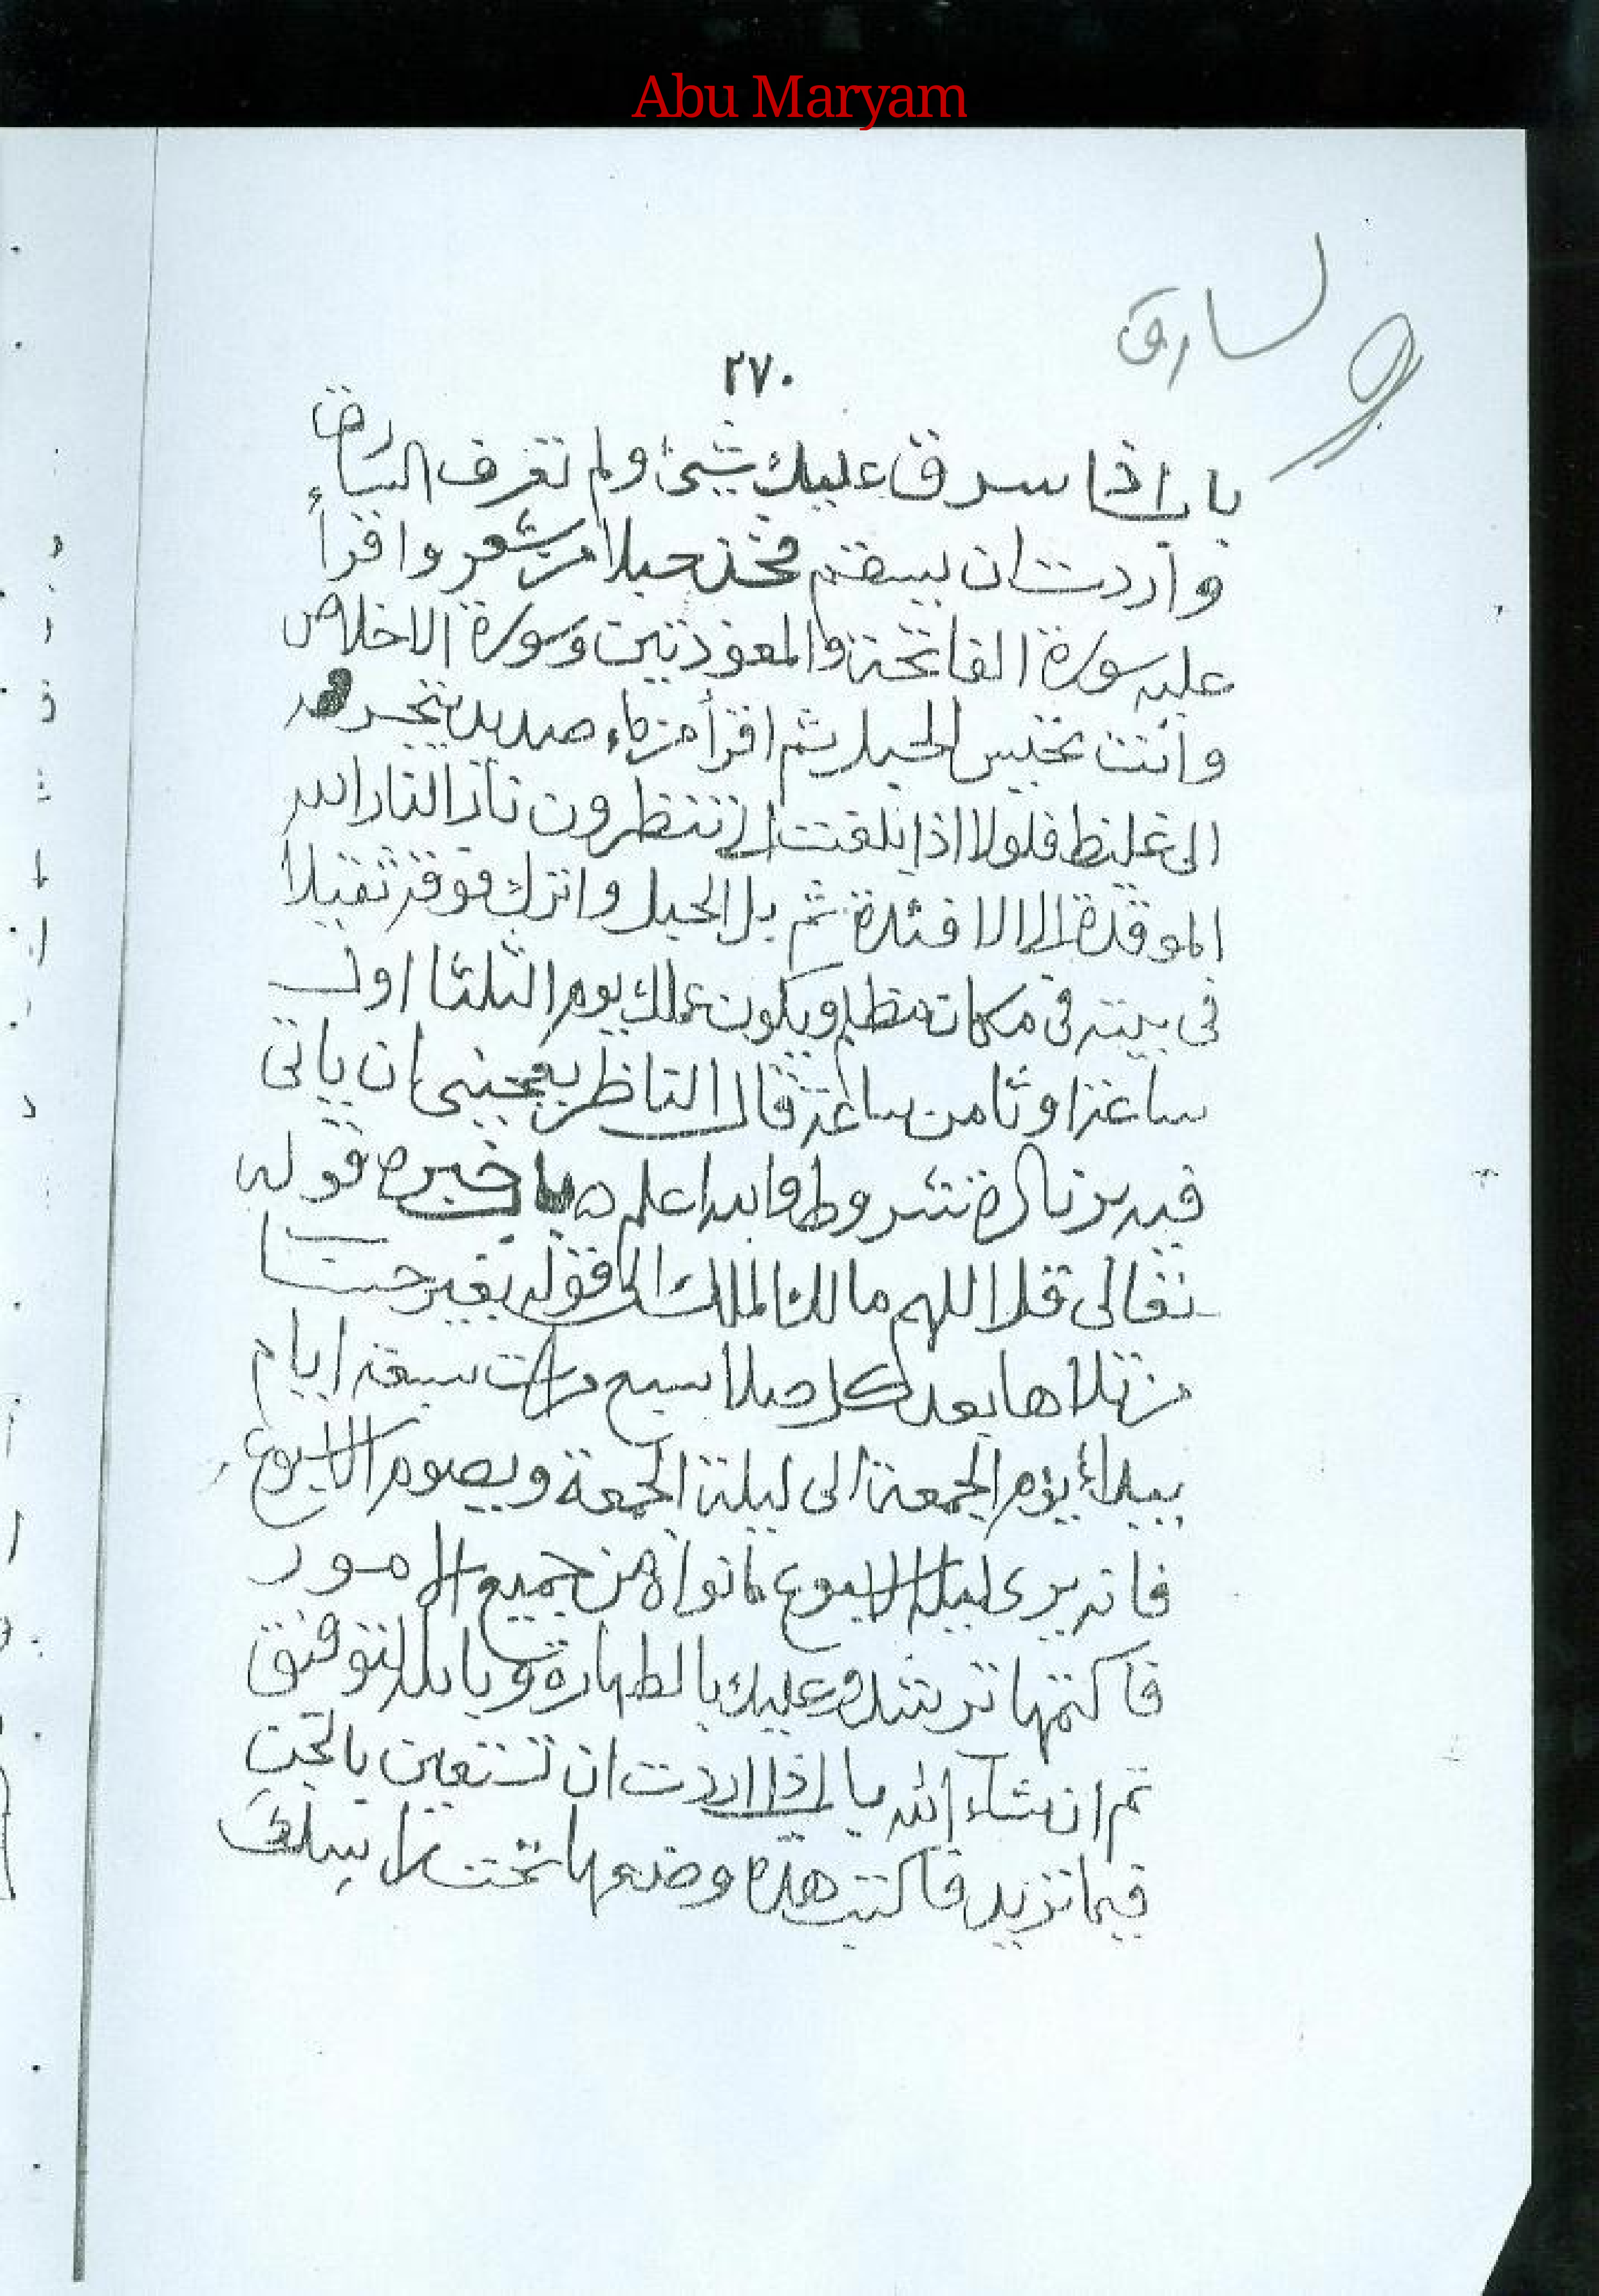 Abu Maryam
السارق
٢٧٠
باب اذا سرق عليك شيئ ولم تعرف السارق
واردت ان يسقم فخذ حبلا من شعر واقرأ
عليه سورة الفاتحة والمعوذتين وسورة الاخلاص
وانت تحبس الحبل ثم اقرأ من ماء صديد يتجرعه
الى غليظ فلولا اذا بلغت الى تنظرون نار الله
الموقدة الى الافئدة ثم بل الحبل واترك فوقه ثقيلا
فى بيته فى مكان مظلم ويكون عملك يوم الثلثا اول
ساعة او ثامن ساعة قال الناظر يعجبنى ان ياتى
فيه شروط والله اعلم باب خبره قوله
تعالى قل اللهم مالك الملك الى قوله بغير حساب
من تلاها بعد كل صلا سبع مرات سبعة ايام
يبدأ يوم الجمعة الى ليلة الجمعة ويصوم الاسبوع
فانه يرى ليلة الاسبوع مانواه من جميع الامور
فاكتمها ترشد وعليك بالطهارة وبالله التوفيق
تم ان شاء الله باب اذا اردت ان تستعين بالجن
فيما تريد فاكتب هذه وضعها تحت راسك